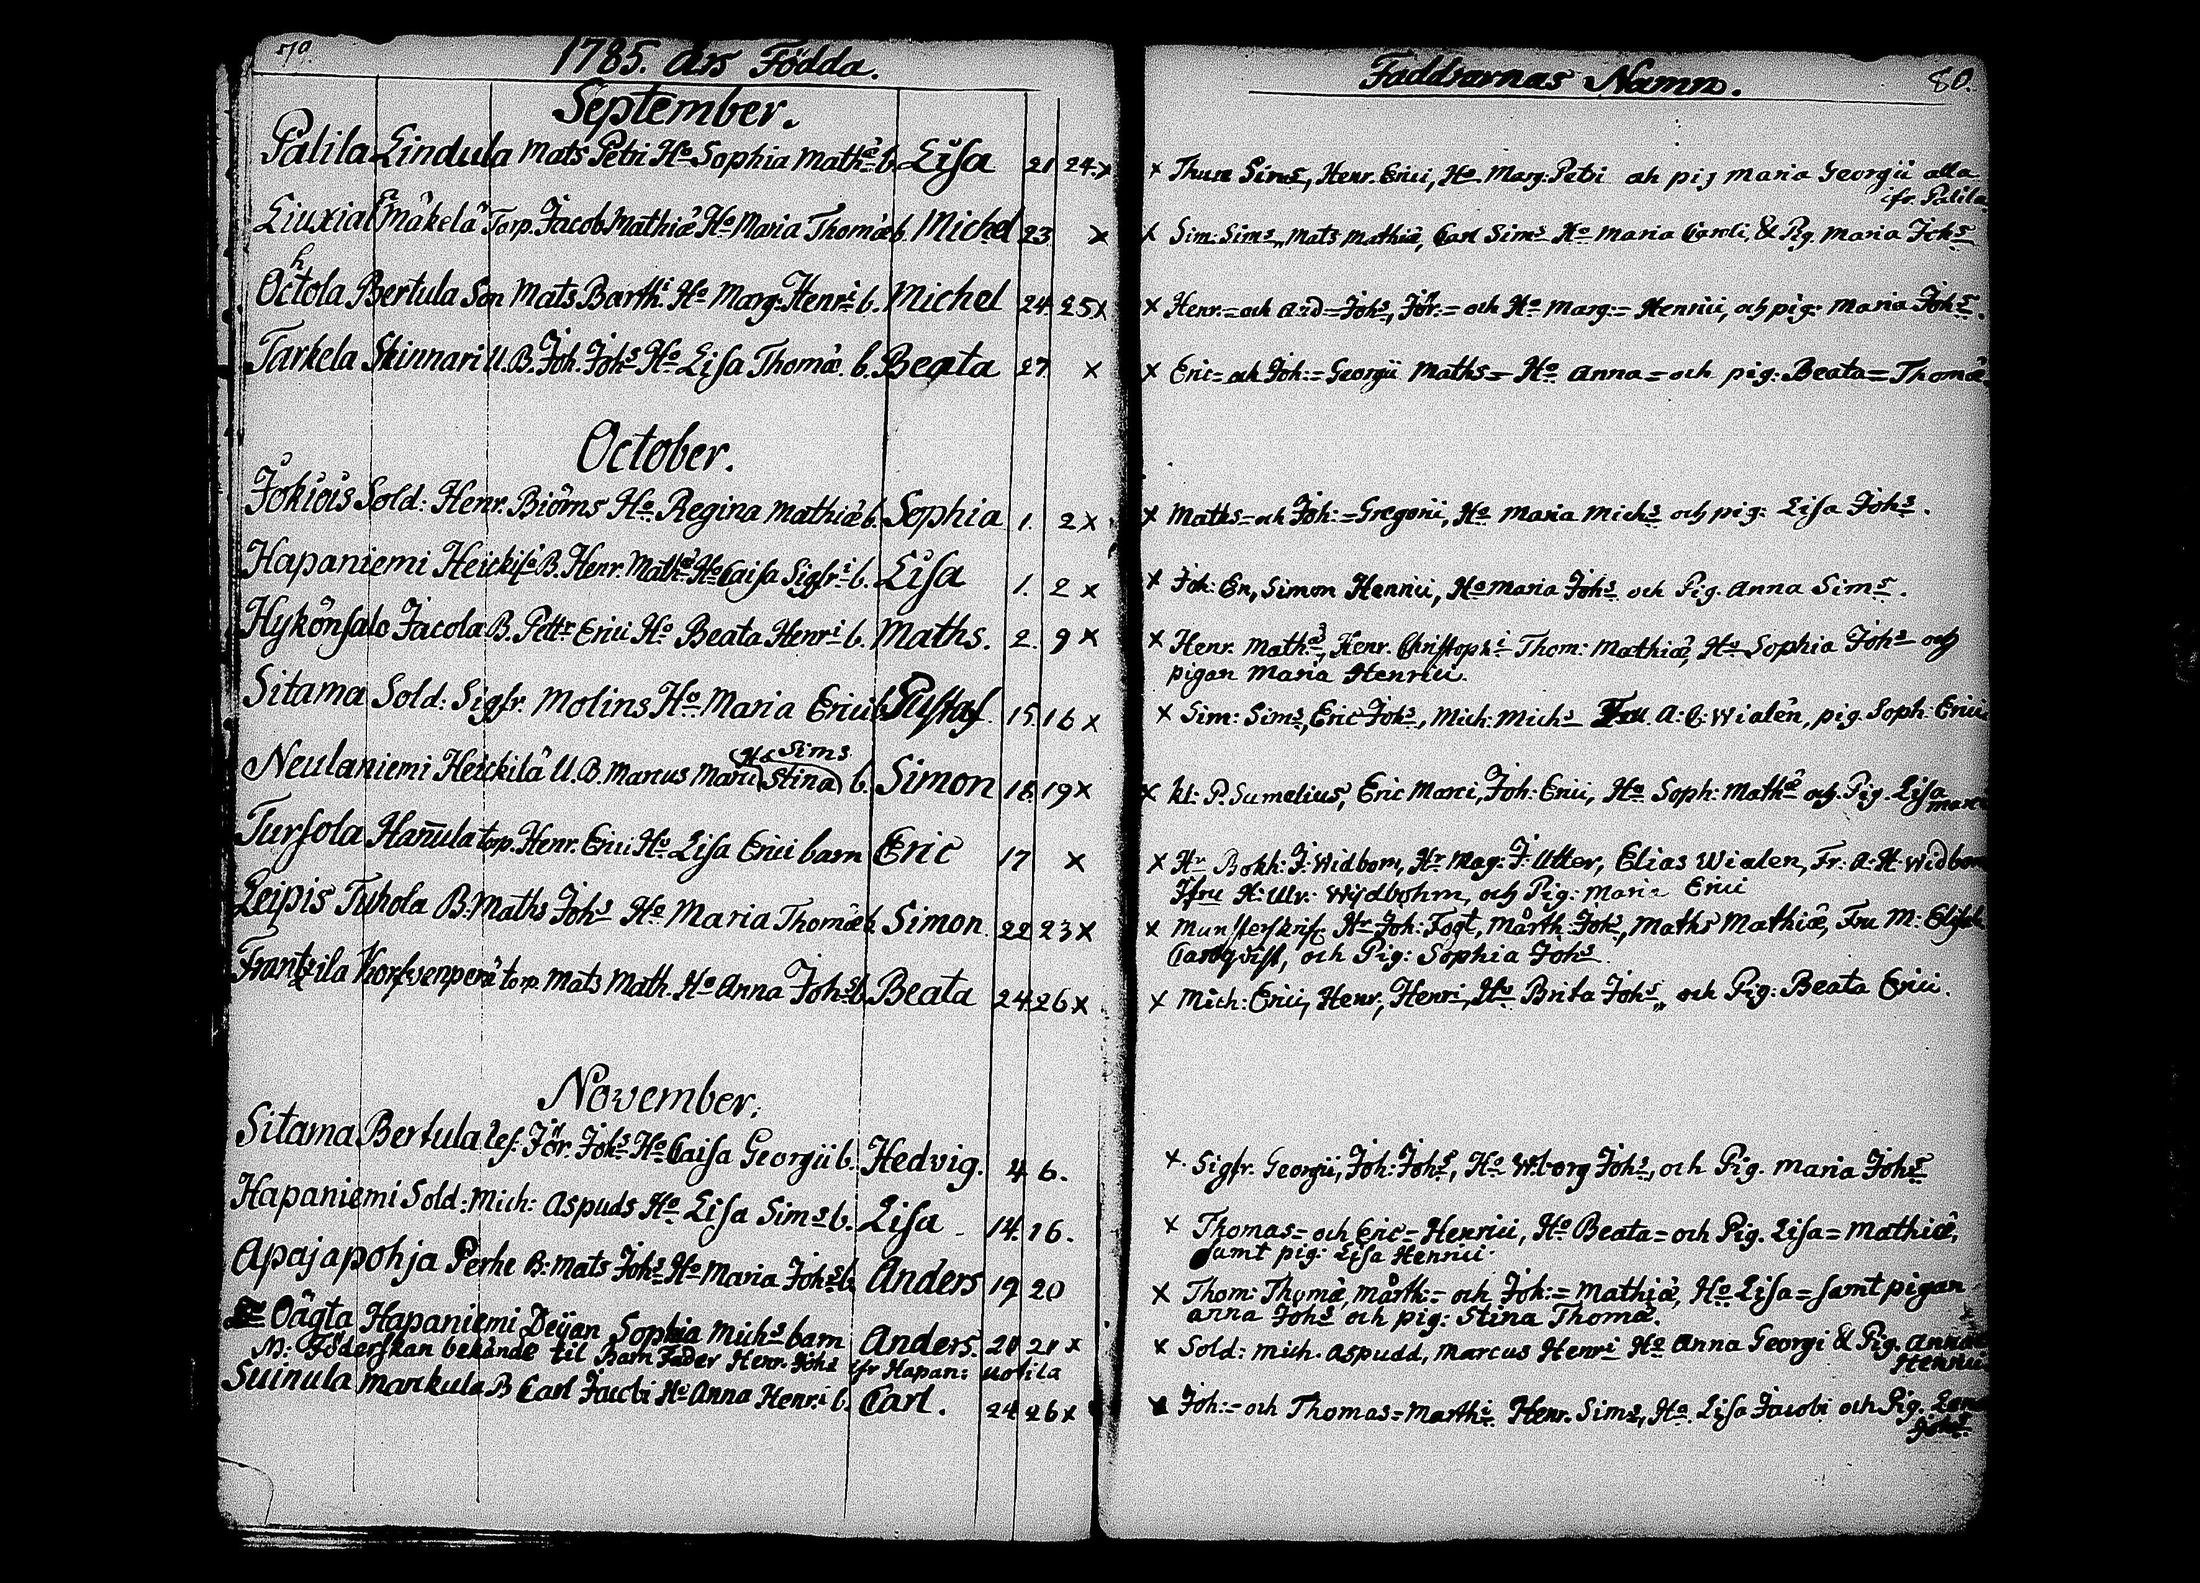 79.
1785. Års Födda.
September.
Palila Lindula Mats Petri Ho Sophia Mathæ b. Lisa 21 24. x
Liuxiala Mäkelä Torp. Jacob Mathiæ Ho Maria Thomæ b. Michel 23 x
Ochtola Bertula Son Mats Barthi Ho Marg. Henri b. Michel 24. 25 x
Tarkela Skinnari U. B. Joh. Johs Ho Lisa Thomæ b. Beata 27 x
October.
Jokiois Sold: Henr. Biörns Ho Regina Mathiæ b. Sophia 1. 2 x
Hapaniemi Heickilä B. Henr. Mathæ Ho Caisa Sigfri b. Lisa 1. 2 x
Hykönsalo Jacola B. Pettr Erici Ho Beata Henri b. Maths. 2. 9 x
Sitama Sold: Sigfr. Molins Ho Maria Erici b. Gustaf 15. 16 x
Neulaniemi Heickilä U. B. Marcus Marci Ho Stina Sims b. Simon 16. 19 x
Tursola Hannula torp. Henr. Erici Ho Lisa Erici barn Eric 17 x
Leipis Tuhola B. Maths Johs Ho Maria Thomæ b. Simon. 22 23 x
Frantzila Korfvenperä torp. Mats Math. Ho Anna Johs b. Beata 24. 26 x
November.
Sitama Bertula Jör. Johs Ho Caisa Georgii b. Hedvig. 4 6.
Hapaniemi Sold: Mich: Aspuds Ho Lisa Sims b. Lisa 14. 16.
Apajapohja Perhe B: Mats Johs Ho Maria Johs b. Anders 19 20
Oägta Hapaniemi Deijan Sophia Michs barn Anders. 20 21 x
N: Föderskan bekände til Barn Fader Henr. Johs ifr Hapan: uotila
Suinula Markula B Carl Jacobi Ho Anna Henri b. Carl. 24 26 x
Faddrarnas Namn. 80.
x Thure Sims, Henr. Erici, Ho Marg: Petri och pig Maria Georgii alla
ifr. Palila.
x Sim: Sims, Mats Mathiæ, Carl Sims Ho Maria Caroli, & Pig. Maria Johs
x Henr.= och And= Johs, Jör:= och Ho Marg:= Henrici, och pig: Maria Johs.
x Eric= och Joh:= Georgii Maths= Ho Anna= och pig: Beata= Thomæ
x Maths= och Joh:= Gregorii, Ho Maria Michs och pig: Lisa Johs.
x Joh: Er, Simon Henrici, Ho Maria Johs och Pig. Anna Sims.
x Henr. Mathæ, Henr. Christophi Thom: Mathiæ, Ho Sophia Johs och
pigan Maria Henrici.
x Sim: Sims, Eric Johs, Mich: Michs Fru A: C: Wialén, pig. Soph: Erici
x kl: P. Sumelius, Eric Marci, Joh: Erici, Ho Soph: Mathæ och Pig. Lisa
Marci
x Hr Bokh: J: Widbom, Hr Mag: J: Utter, Elias Wialen, Fr: A: H: Widbom
Jfru H: Ulr: Wijdbohm, och Pig: Maria Erici
x Munsterskrif: Hr Joh: Fogt, Mårth: Johs, Maths Mathiæ, Fru M: Elisab
Carlqvist, och Pig: Sophia Johs.
x Mich: Erici, Henr, Henri, Ho Brita Johs, och Pig: Beata Erici.
x. Sigfr. Georgii, Joh: Johs, Ho Wiborg Johs, och Pig. Maria Johs
x Thomas= och Eric= Henrici, Ho Beata= och Pig. Lisa= Mathiæ,
samt pig: Lisa Henrici.
x Thom: Thomæ, Mårth:= och Joh:= Mathiæ, Ho Lisa= samt pigan
Anna Johs och pig: Stina Thomæ.
x Sold: Mich. Aspudd, Marcus Henri Ho Anna Georgi & Pig. Anna
Henrici
x Joh:= och Thomas= Marthi Henr. Sims, Ho Lisa Jacobi och Pig.
Johs